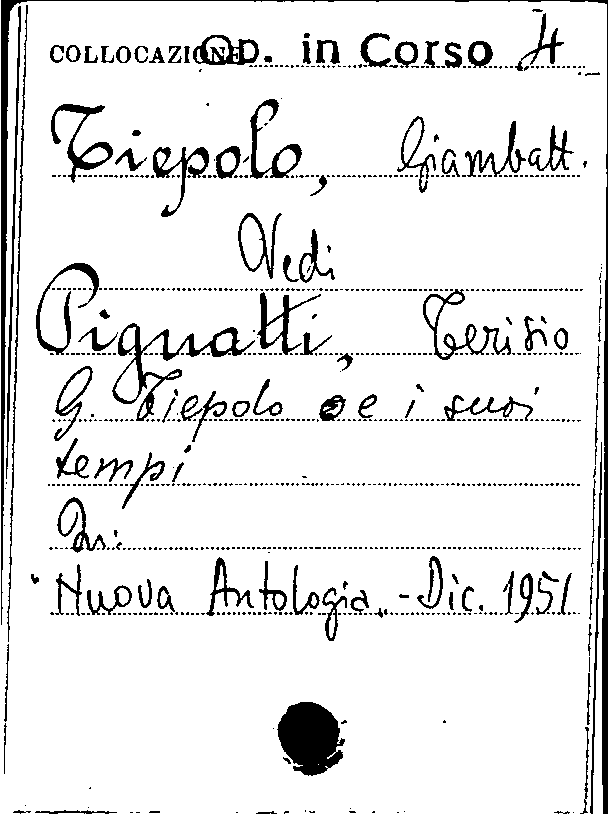 COLLOCAZIONE Op. in Corso 4
Tiepolo, Giambatt.
Vedi
Pignatti, Terisio
G. Tiepolo e i suoi
tempi
In:
"Nuova Antologia„ - Dic. 1951